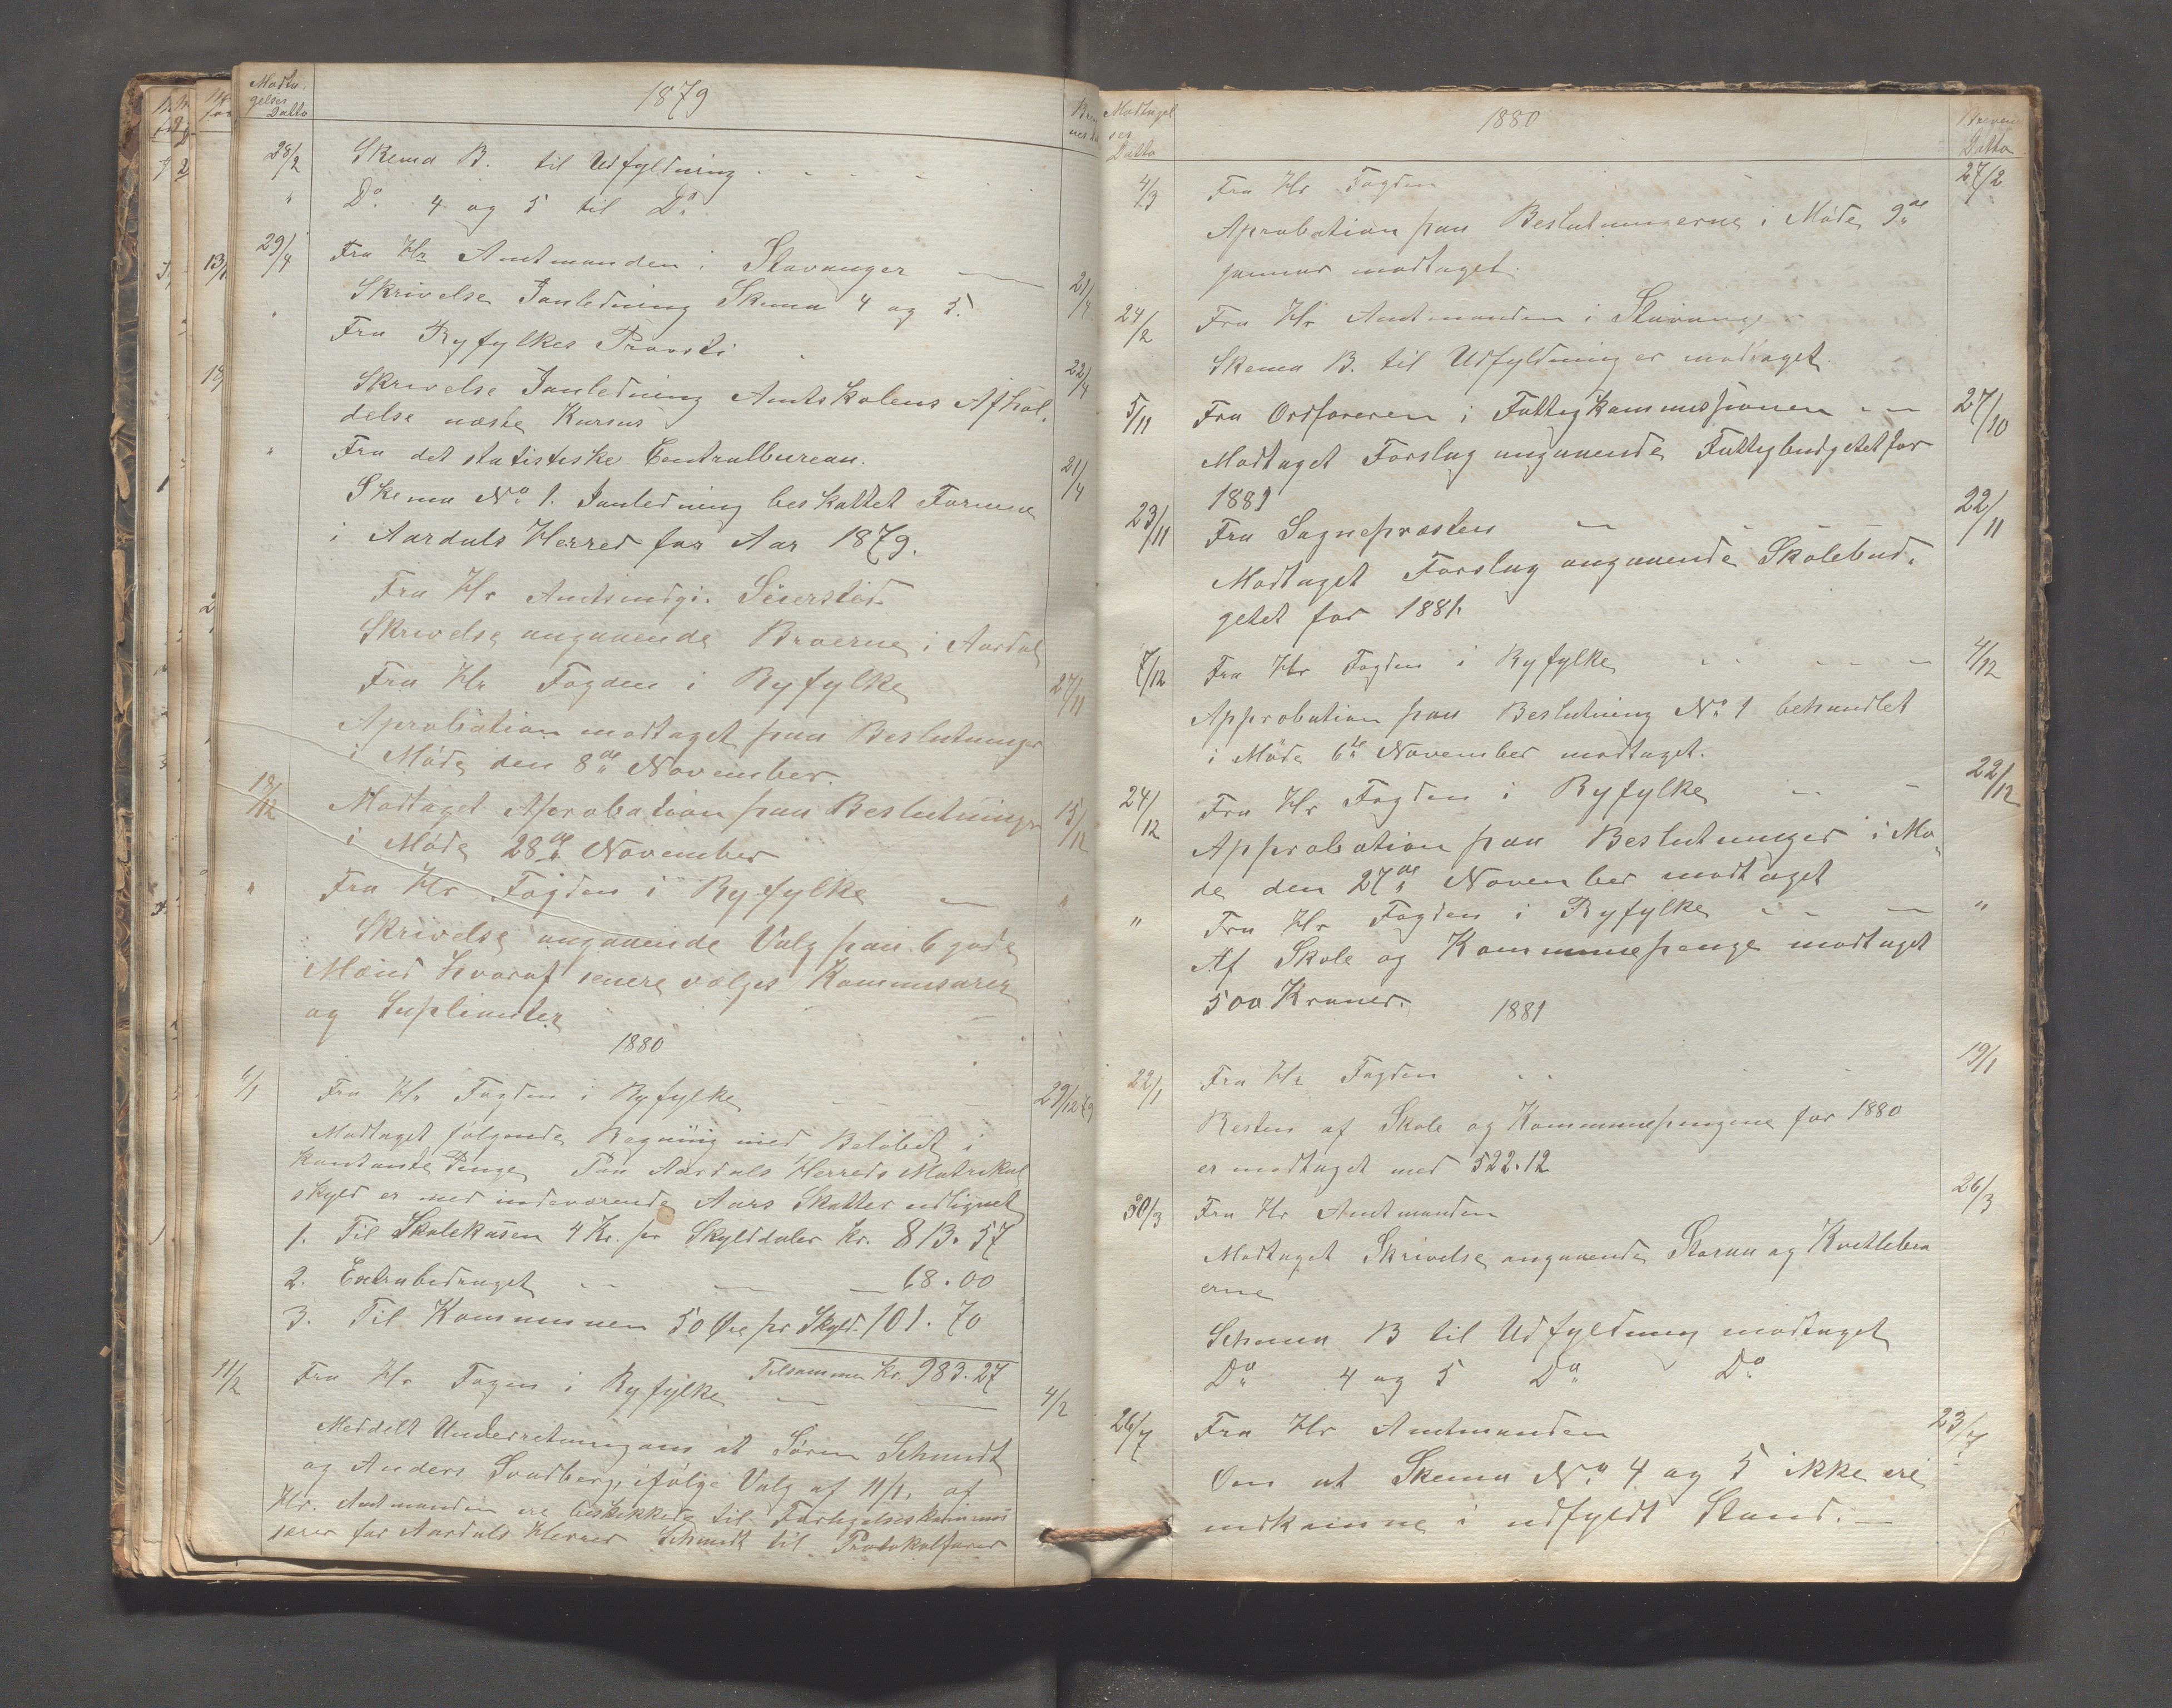 Modta-
gelses
Datto
1879
28/2 Skema B. til Udfyldning
" Do 4 og 5 til Do
29/4 Fra Hr Amtmanden i Stavanger 21/4
Skrivelse Ianledning Skema 4 og 5.
" Fra Ryfylkes Provsti 22/4
Skrivelse Ianledning Amtskolens Afhol-
delse næste Kursus
" Fra det statistiske Centralbureau. 21/4
Skema No 1. Ianledning beskattet Formue
i Aardals Herred for Aar 1879.
Fra Hr Amtsindgi. Seiersted
Skrivelse angaaende Broerne i Aardal
Fra Hr Fogden i Ryfylke 27/11
Aprobation modtaget paa Beslutninger
i Møde den 8de November.
18/12 Modtaget Aprobation paa Beslutninger 15/12
i Møde 28de November
" Fra Hr Fogden i Ryfylke "
Skrivelse angaaende Valg paa 6 gode
Mænd hvoraf senere vælges Kommisærer
og Suplianter
1880
6/1 Fra Hr Fogden i Ryfylke 29/12 79
Modtaget følgende Regning med Beløbet i
kontante Penge Paa Aardals Herreds Matrikul
skyld er med indeværende Aars Skatter udlignet
1. Til Skolekasen 4 Kr. pr Skylddaler Kr. 813.57
2. Extrabidraget 68.00
3. Til Kommunen 50 Øre pr Skyld. 101.70
Tilsammen Kr. 983.27
11/2 Fra Hr Fogen i Ryfylke 4/2
Meddelt Underretning om at Sören Schmidt
og Anders Svadberg, ifølge Valg af 11/1, af
Hr. Amtmanden ere beskikkede til Forligelseskommis
særer for Aardals Herred Schmidt til Protokolfører
Modtagel
ses
Datto
1880
Datto
4/3 Fra Hr Fogden 27/2
Aprobation paa Beslutningerne i Møde 9de
januar modtaget.
24/2 Fra Hr Amtmanden i Stavanger
Skema B. til Udfyldning er modtaget.
5/11 Fra Ordføreren i Fattigkommissionen 27/10
Modtaget Forslag angaaende Fattigbudgetet for
1881
23/11 Fra Sognepræsten 22/11
Modtaget Forslag angaaende Skolebud-
getet for 1881.
7/12 Fra Hr Fogden i Ryfylke 4/12
Approbation paa Beslutning No 1 behandlet
i Møde 6te November modtaget.
24/12 Fra Hr Fogden i Ryfylke 22/12
Approbation paa Beslutninger i Mø-
de den 27de November modtaget
" Fra Hr Fogden i Ryfylke "
Af Skole og Kommunepenge modtaget
500 Kroner.
1881
22/1 Fra Hr Fogden 19/1
Resten af Skole og Kommunepengene for 1880
er modtaget med 522.12
30/3 Fra Hr Amtmanden 26/3
Modtaget Skrivelse angaaende Storaa og
erne
Schema B til Udfyldning modtaget
Do 4 og 5 Do Do
26/7 Fra Hr Amtmanden 23/7
Om at Skema No 4 og 5 ikke ere
indkomne i udfyldt Stand.